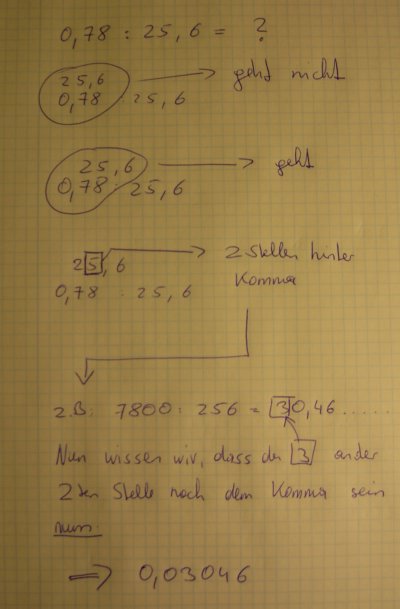 0,78 : 25,6 = ?
25,6 geht nicht
0,78 : 25,6
25,6 geht
0,78 : 25,6
25,6 2 Stellen hinter
Komma
0,78 : 25,6
z.B. 7800 : 256 = 30,46......
Nun wissen wir, dass der 3 an der
2ten Stelle nach dem Komma sein
muss.
⇒ 0,03046